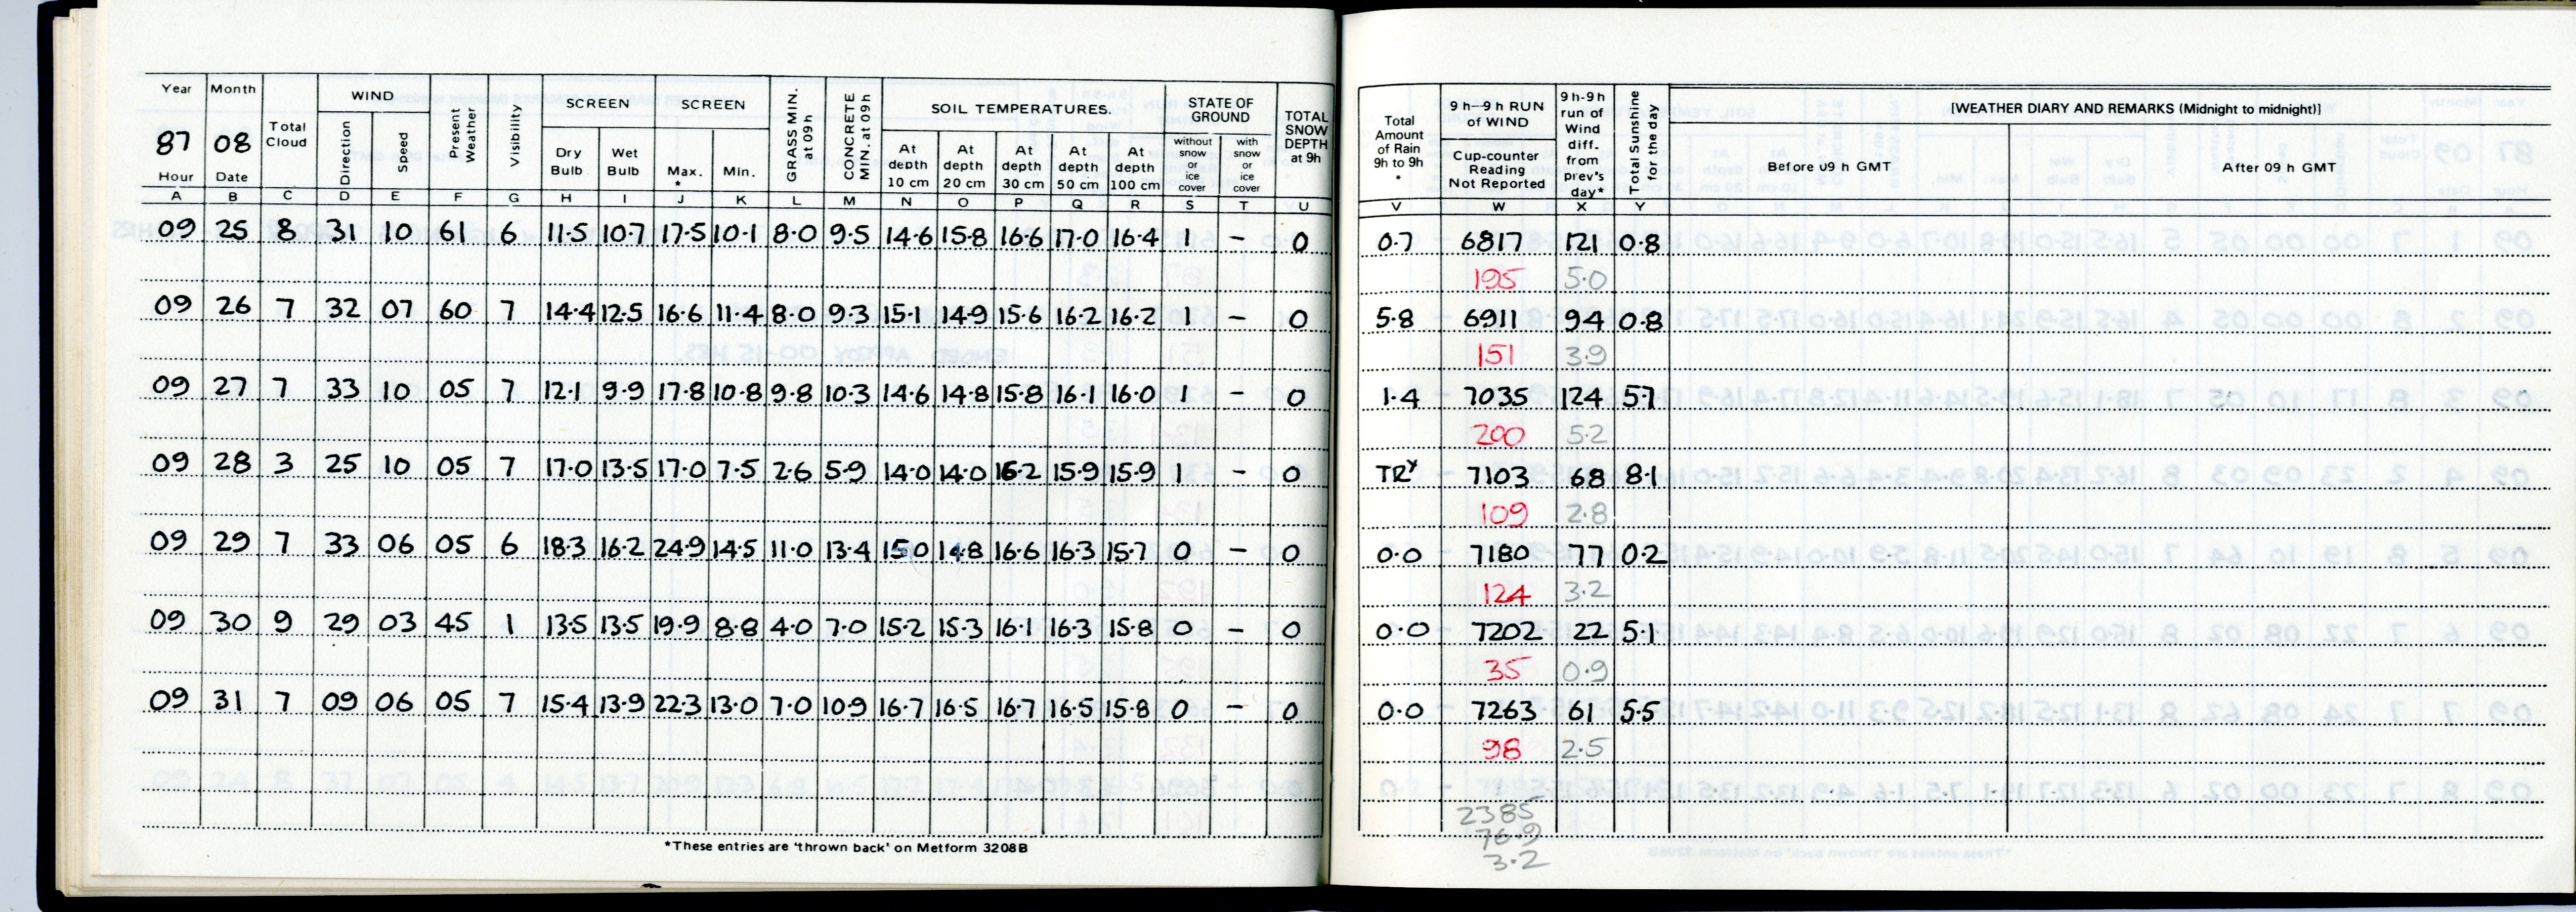 Year Month WIND SCREEN SCREEN SOIL TEMPERATURES. STATE OF GROUND TOTAL SNOW DEPTH at 9h
87 08 Total Cloud Direction Speed Present Weather Visibility Dry Bulb Wet Bulb Max. * Min. GRASS MIN. at 09h CONCRETE MIN. at 09h At depth 10 cm At depth 20 cm At depth 30 cm At depth 50 cm At depth 100 cm without snow or ice cover with snow or ice cover
Hour Date
A B C D E F G H I J K L M N O P Q R S T U
09 25 8 31 10 61 6 11.5 10.7 17.5 10.1 8.0 9.5 14.6 15.8 16.6 17.0 16.4 1 – 0
09 26 7 32 07 60 7 14.4 12.5 16.6 11.4 8.0 9.3 15.1 14.9 15.6 16.2 16.2 1 – 0
09 27 7 33 10 05 7 12.1 9.9 17.8 10.8 9.8 10.3 14.6 14.8 15.8 16.1 16.0 1 – 0
09 28 3 25 10 05 7 17.0 13.5 17.0 7.5 2.6 5.9 14.0 14.0 16.2 15.9 15.9 1 – 0
09 29 7 33 06 05 6 18.3 16.2 24.9 14.5 11.0 13.4 15.0 14.8 16.6 16.3 15.7 0 – 0
09 30 9 29 03 45 1 13.5 13.5 19.9 8.8 4.0 7.0 15.2 15.3 16.1 16.3 15.8 0 – 0
09 31 7 09 06 05 7 15.4 13.9 22.3 13.0 7.0 10.9 16.7 16.5 16.7 16.5 15.8 0 – 0
*These entries are 'thrown back' on Metform 3208B
Total Amount of Rain 9h to 9h * 9 h–9 h RUN of WIND Cup-counter Reading Not Reported 9 h-9 h run of Wind diff. from prev's day* Total Sunshine for the day [WEATHER DIARY AND REMARKS (Midnight to midnight)]
Before 09 h GMT After 09 h GMT
V W X Y
0.7 6817 121 0.8
195 5.0
5.8 6911 94 0.8
151 3.9
1.4 7035 124 5.7
200 5.2
TRY 7103 68 8.1
109 2.8
0.0 7180 77 0.2
124 3.2
0.0 7202 22 5.1
35 0.9
0.0 7263 61 5.5
98 2.5
2385
76.9
3.2